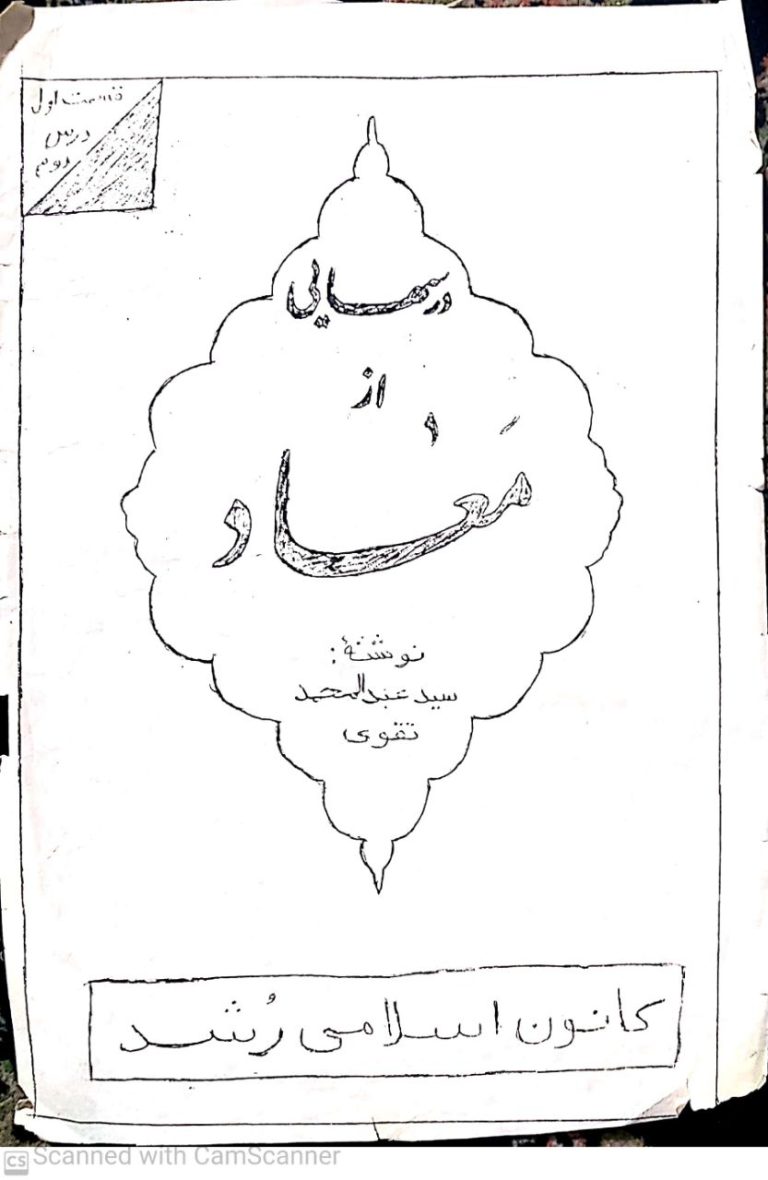 قسمت اول
درس
دوم
درسهایی
از
معاد
نوشتهٔ:
سید عبدالمحمد
تقوی
کانون اسلامی رُشد
CS Scanned with CamScanner